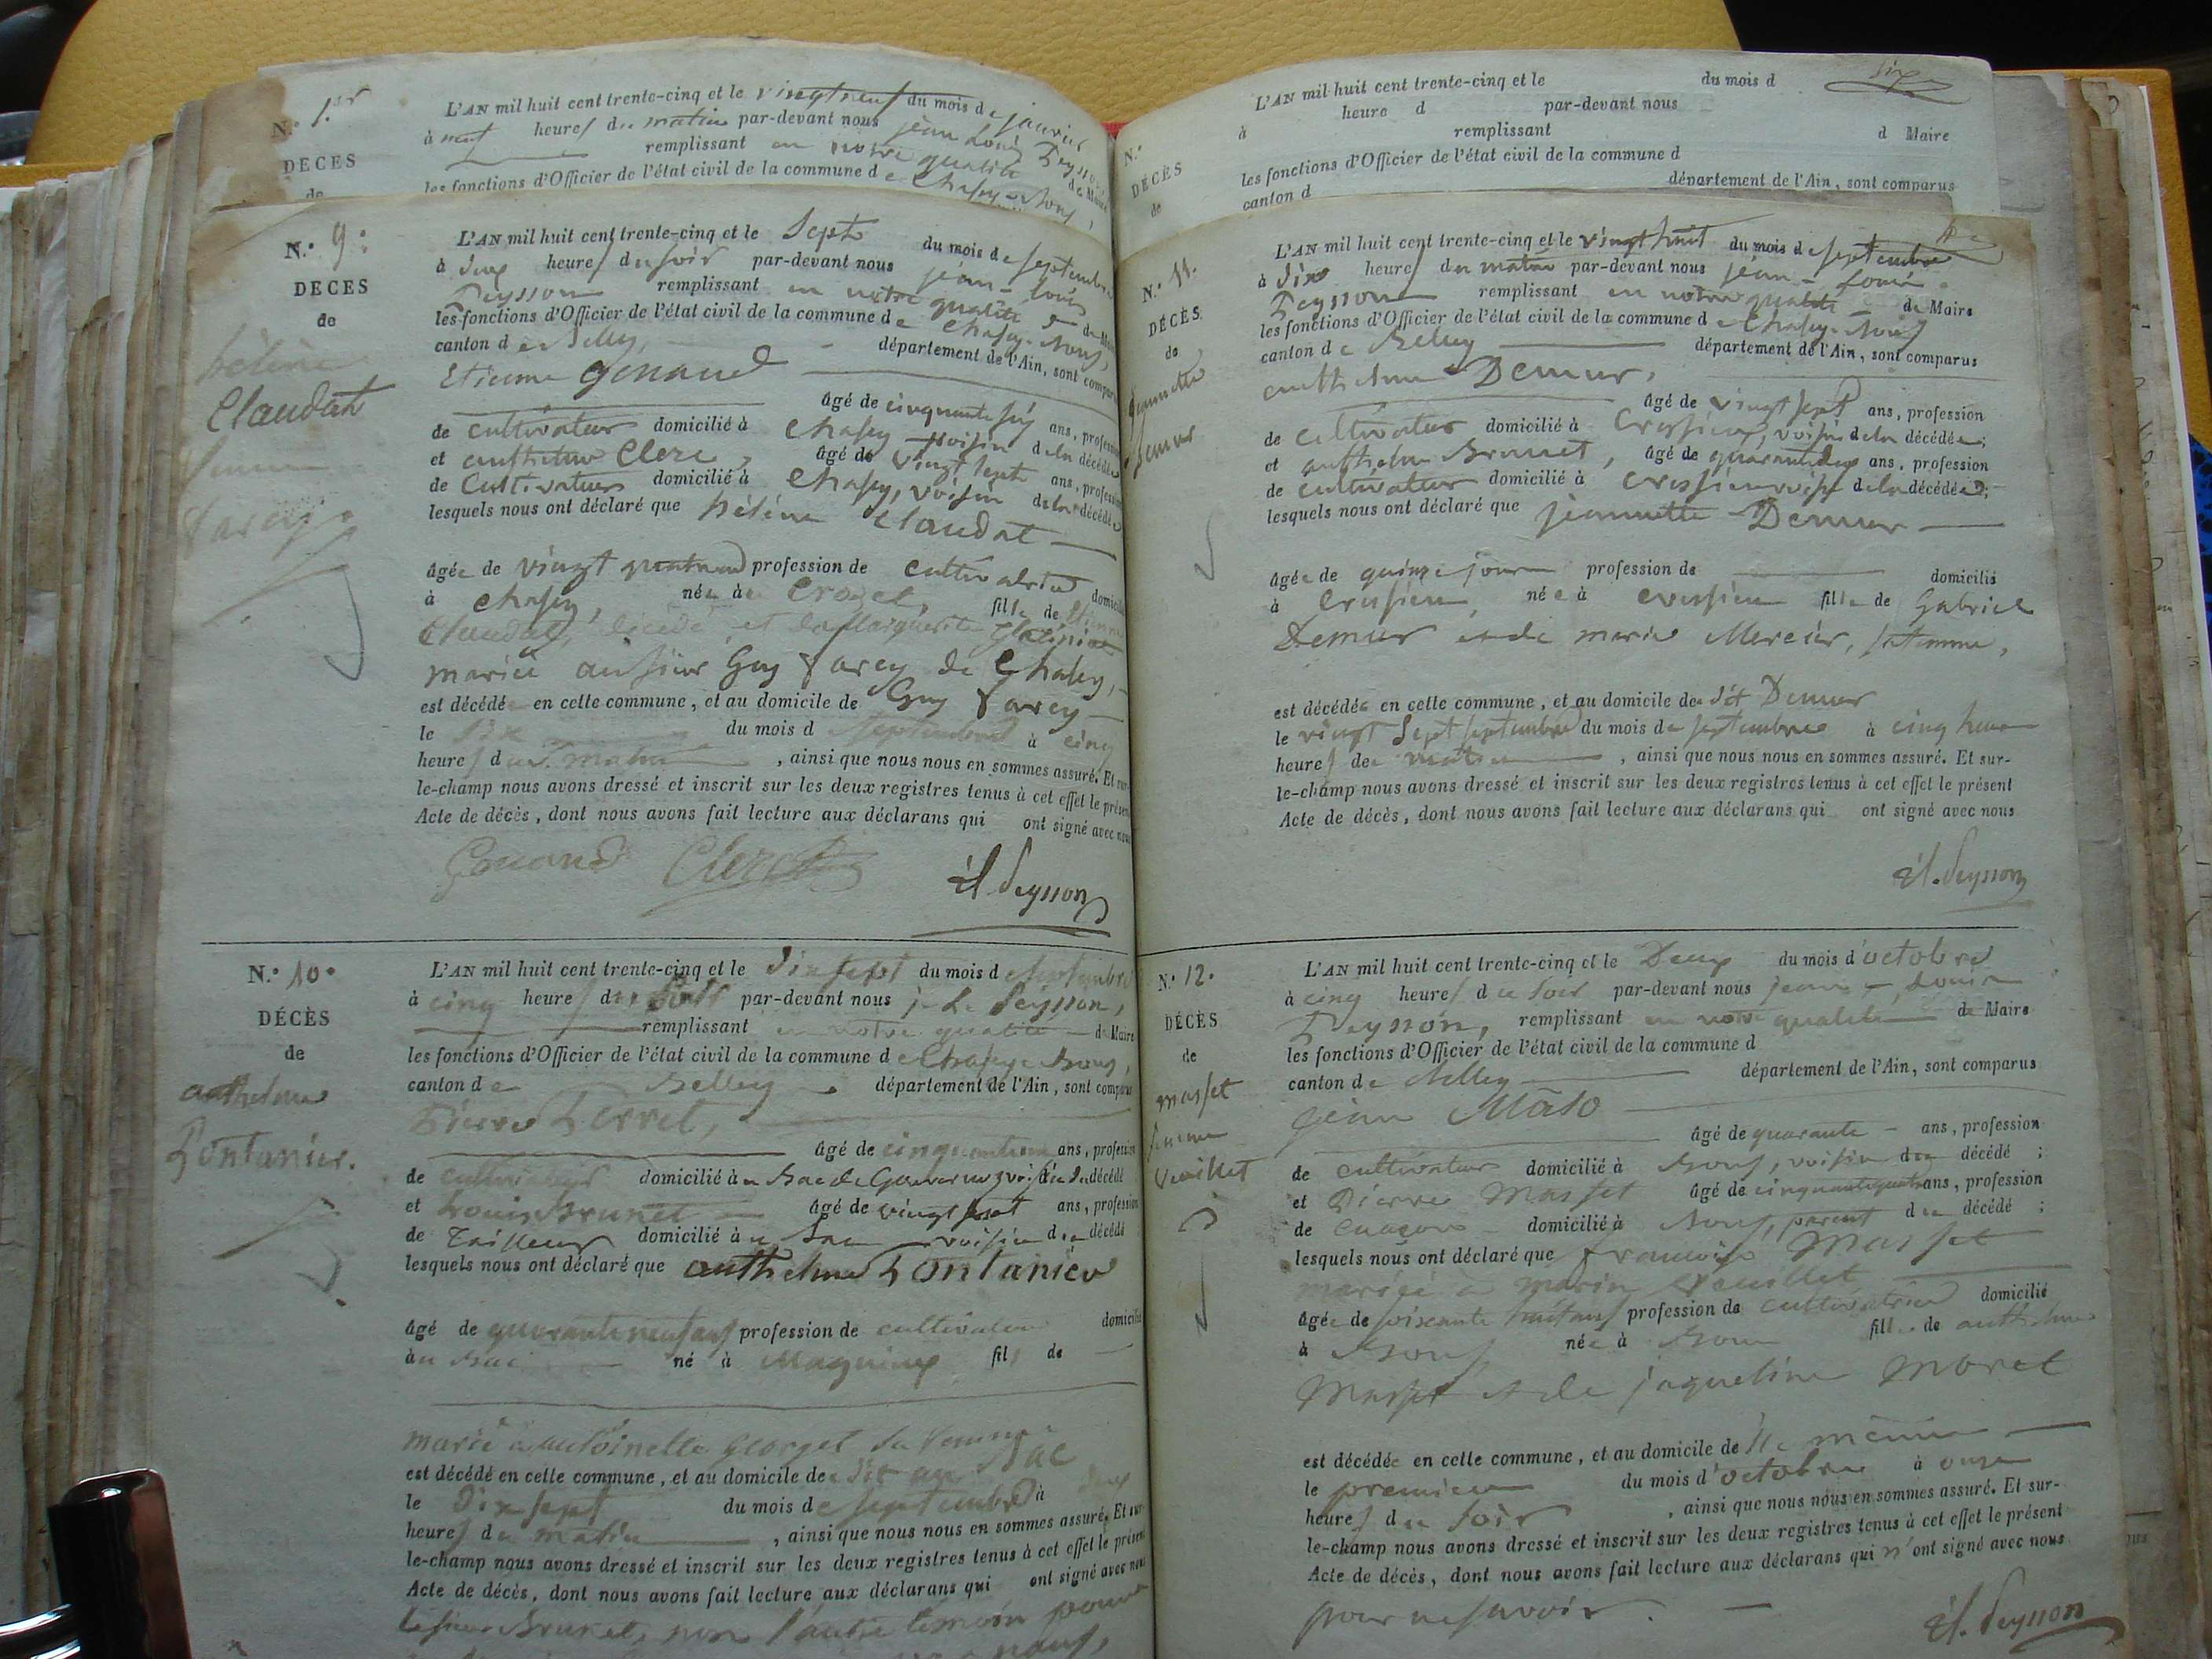 N.° 1.er
DECES
de
L'AN mil huit cent trente-cinq et le vingt neuf du mois de janvier
à neuf heures du matin par-devant nous jean Louis Peysson
remplissant en notre qualité de Maire
les fonctions d'Officier de l'état civil de la commune de Chasey-Bons,
N.° 9.
DECES
de
hélène
Claudat
femme
Varey.
L'AN mil huit cent trente-cinq et le Sept du mois de septembre
à heures du soir par-devant nous jean-louis
Peysson remplissant en notre qualité de Maire
les fonctions d'Officier de l'état civil de la commune de Chasey-Bons,
canton de Belley, département de l'Ain, sont comparus
Etienne Gonand
âgé de cinquante six ans, profession
de cultivateur domicilié à Chasey voisin de la décédée
et anthelme Clerc, âgé de vingt sept ans, profession
de Cultivateur domicilié à Chasey, voisin de la décédée
lesquels nous ont déclaré que hélène Claudat
âgée de vingt quatre profession de cultivatrice domicilié
à Chasey, née à fille de Etienne
Claudat, décédé, et de Marguerite
mariée au sieur Guy Varey de Chasey,
est décédé en cette commune, et au domicile de Guy Varey
le du mois d septembre à cinq
heures du matin, ainsi que nous nous en sommes assuré. Et sur-
le-champ nous avons dressé et inscrit sur les deux registres tenus à cet effet le présent
Acte de décès, dont nous avons fait lecture aux déclarans qui ont signé avec nous
Gonand Clerc Jl. Peysson
N.° 10.
DÉCÈS
de
anthelme
Fontanier.
L'AN mil huit cent trente-cinq et le dix sept du mois de septembre
à cinq heures du soir par-devant nous j. L. Peysson,
remplissant en notre qualité de Maire
les fonctions d'Officier de l'état civil de la commune de Chasey-Bons,
canton de Belley département de l'Ain, sont comparus
Pierre Perret,
âgé de ans, profession
de cultivateur domicilié à voisin du décédé
et Louis Brunet âgé de vingt sept ans, profession
de Tailleur domicilié à voisin du décédé
lesquels nous ont déclaré que anthelme Fontanier
âgé de quarante neuf ans profession de cultivateur domicilié
né à fils de
marié à antoinette Georget sa femme
est décédé en cette commune, et au domicile de
le Dix sept du mois de septembre à
heures du matin, ainsi que nous nous en sommes assuré. Et sur-
le-champ nous avons dressé et inscrit sur les deux registres tenus à cet effet le présent
Acte de décès, dont nous avons fait lecture aux déclarans qui ont signé avec nous
le sieur Brunet, non l'autre témoin pour
N.°
DÉCÈS
de
L'AN mil huit cent trente-cinq et le du mois d
à heure d par-devant nous
remplissant d Maire
les fonctions d'Officier de l'état civil de la commune d
canton d département de l'Ain, sont comparus
N.° 11.
DÉCÈS
de
jeannette
Demur
L'AN mil huit cent trente-cinq et le vingt huit du mois de septembre
à dix heures du matin par-devant nous jean-louis
Peysson remplissant en notre qualité de Maire
les fonctions d'Officier de l'état civil de la commune de Chasey-Bons
canton de Belley département de l'Ain, sont comparus
anthelme Demur,
âgé de vingt sept ans, profession
de cultivateur domicilié à Cressieu, voisin de la décédée;
et anthelme Brunet, âgé de quarante deux ans, profession
de cultivateur domicilié à Cressieu voisin de la décédée;
lesquels nous ont déclaré que jeannette Demur
âgée de quinze jours profession de domicilié
à Cressieu, née à Cressieu fille de Gabriel
Demur et de marie Mercier, sa femme,
est décédée en cette commune, et au domicile de dit Demur
le vingt Sept septembre du mois de septembre à cinq heures
heures de matin, ainsi que nous nous en sommes assuré. Et sur-
le-champ nous avons dressé et inscrit sur les deux registres tenus à cet effet le présent
Acte de décès, dont nous avons fait lecture aux déclarans qui ont signé avec nous
Jl. Peysson
N.° 12.
DÉCÈS
de
masset
femme
Veuillet
L'AN mil huit cent trente-cinq et le Deux du mois d'octobre
à cinq heures du soir par-devant nous jean-Louis
Peysson, remplissant en notre qualité de Maire
les fonctions d'Officier de l'état civil de la commune d
canton de Belley département de l'Ain, sont comparus
jean
âgé de quarante ans, profession
de cultivateur domicilié à Bons, voisin du décédé;
et Pierre Masset âgé de cinquante quatre ans, profession
de domicilié à Bons, parent du décédé;
lesquels nous ont déclaré que françoise Masset
mariée à marin Veuillet
âgée de soixante huit ans profession de cultivatrice domicilié
à Bons née à Bons fille de anthelme
Masset et de jaqueline Moret
est décédée en cette commune, et au domicile de
le premier du mois d'octobre à onze
heures du soir, ainsi que nous nous en sommes assuré. Et sur-
le-champ nous avons dressé et inscrit sur les deux registres tenus à cet effet le présent
Acte de décès, dont nous avons fait lecture aux déclarans qui n'ont signé avec nous
pour ne savoir.
Jl. Peysson